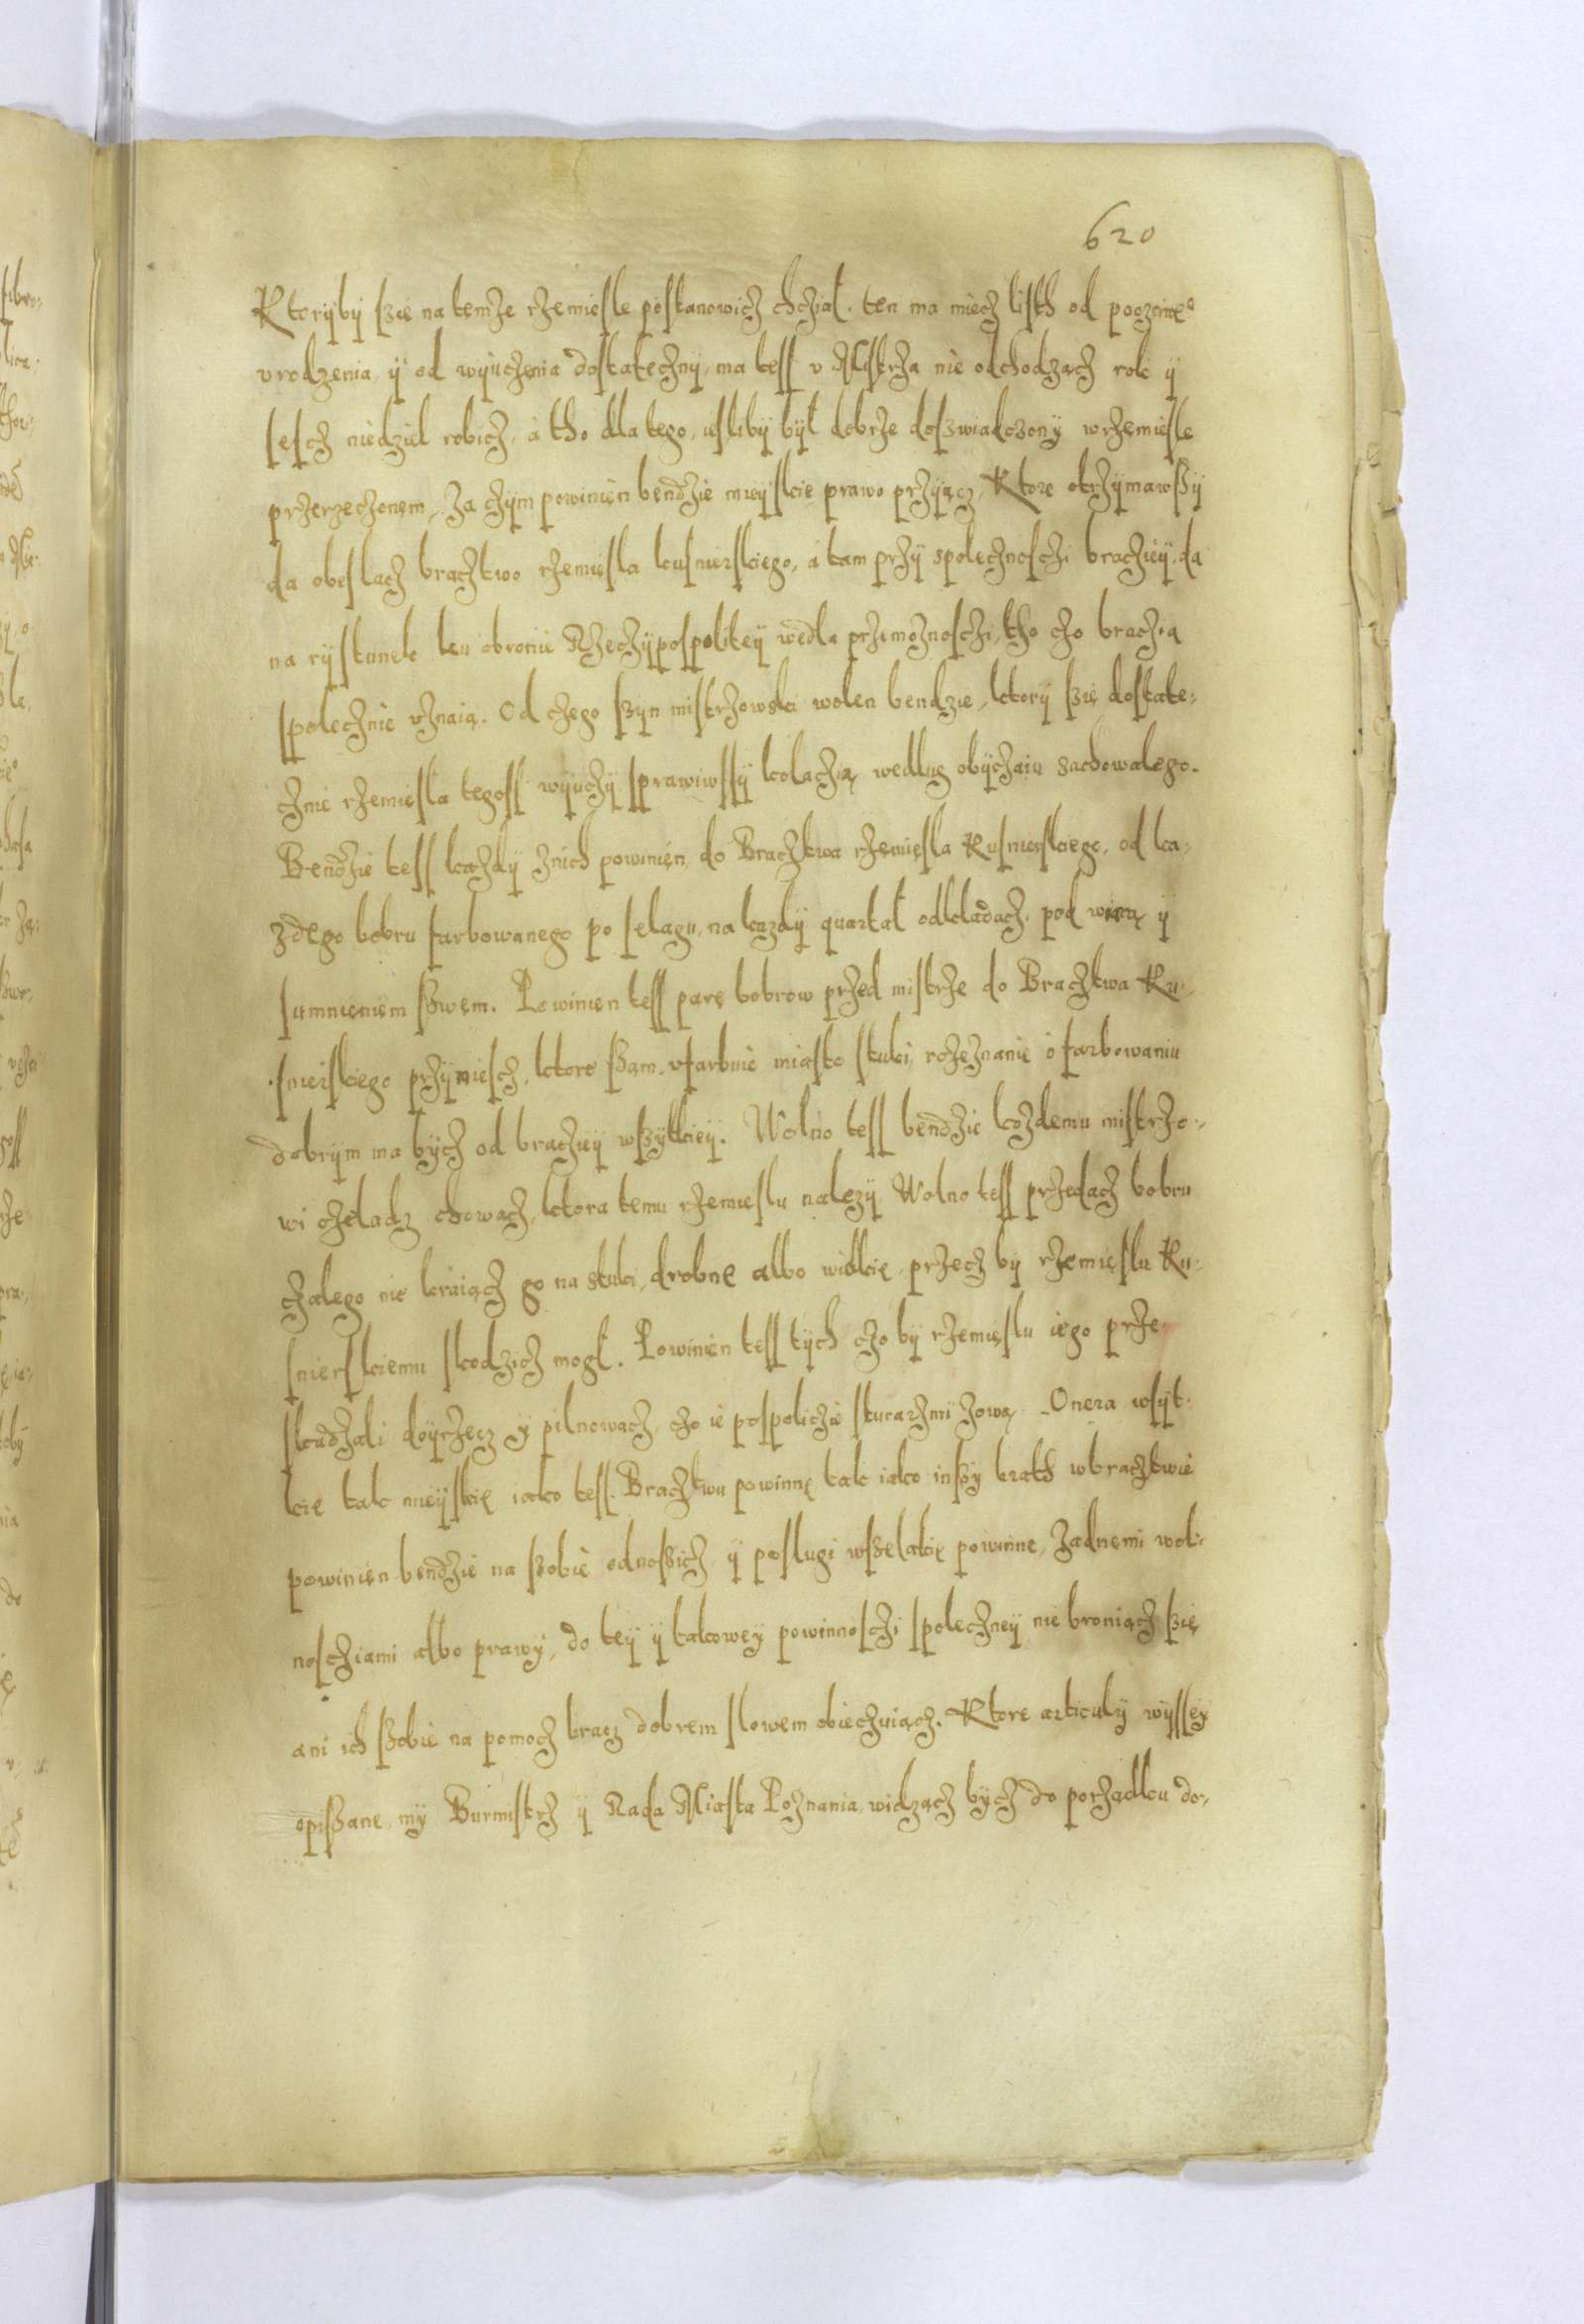 620
Ktoryby szie na temże rżemieśle postanowicz chczial. ten ma miecz listh od pocznie°
vrodzenia, ÿ od wÿuczenia dostatecznÿ, ma tess v Mistrża nie odchodzącz rok ÿ
sescz niedziel robicz, a tho dla tego, iesliby był dobrże doszwiadczony wrżemiesle
przerzeczonem, Za czÿm powinien bendzie mieÿskie prawo przÿącz, Ktore otrzÿmawszÿ
da obeslacz braczktwo rżemiesla kusnierskiego, a tam przÿ spolecznosczi braczieÿ, da
na rÿstunek ku obronie Rzeczÿpospolitey wedla przemożnosczi, tho czo braczia
spolecznie vznaią. Od czego szyn mistrżowski wolen bendzie, ktorÿ szie dostate,
cznie rżemiesla tegoss wÿuczÿ sprawiwssÿ kolaczią wedlug obÿczaiu zachowalego.
Bendzie tess każdÿ znich powinien, do Braczktwa rżemiesla Kusnierskiego, od ka,
zdego bobru farbowanego po selagu, na kazdÿ quartał odkladacz, pod winą ÿ
sumnieniem szwem. Powinien tess parę bobrow przed mistrże do Braczktwa Ku,
snierskiego przÿniescz, ktore szam vfarbuie miasto stuki, rozeznanie o farbowaniu
dobrÿm ma bÿcz od braczieÿ wszÿtkieÿ. Wolno tess bendzie kożdemu mistrżo,
wi czeladz chowacz, ktora temu rżemieslu nalezÿ Wolno tess przedacz bobru
czalego nie kraiącz go na stuki, drobne albo wielkie, przecz bÿ rżemieslu Ku,
snierskiemu skodzicz mogł. Powinien tess tÿch czo bÿ rżemieslu iego prze,
skadzali doÿrzecz ÿ pilnowacz, czo ie pospoliczie sturarzmi zową. Onera wsÿt,
kie tak mieÿskie iako tess Braczktwu powinne tak iako inszÿ brath wbraczktwie
powinien bendzie na szobie odnoszicz, ÿ poslugi wszelakie powinne, Zadnemi wol,
nosczіami albo prawÿ, do teÿ ÿ takowey powinnosczi spoleczneÿ nie broniącz szie
ani ich szobie na pomocz bracz dobrem slowem obieczuiącz. Ktore articulÿ wÿsseÿ
opiszane, mÿ Burmistrz ÿ Rada Miasta Poznania, widzącz bÿcz do porządku do,